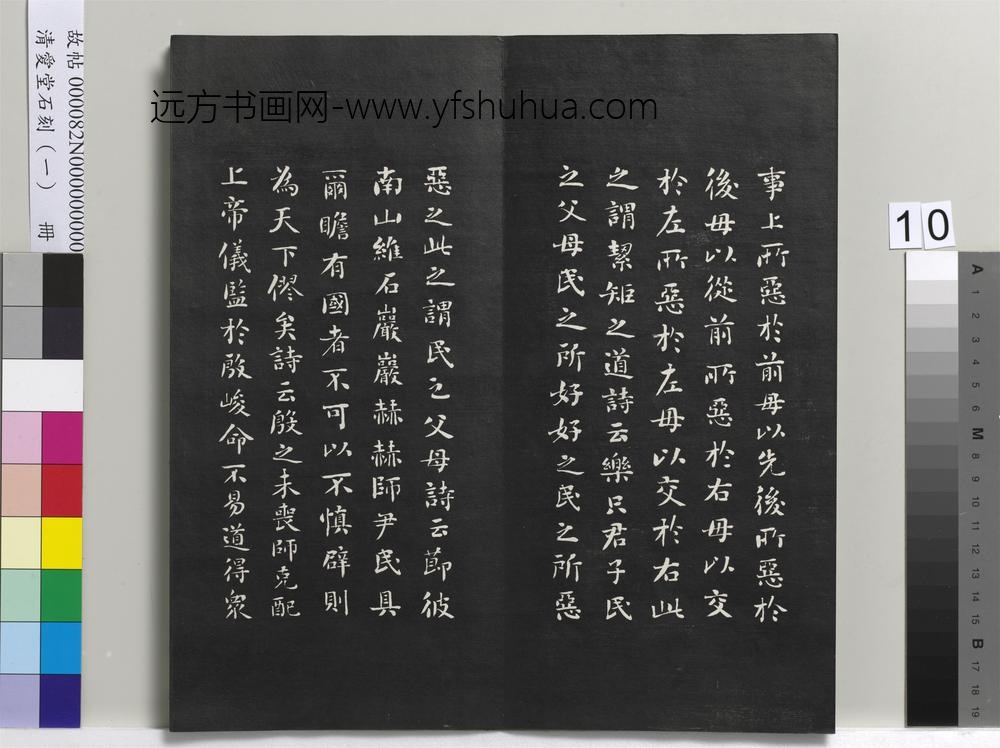 事上所惡於前毋以先後所惡於
後毋以從前所惡於右毋以交
於左所惡於左毋以交於右此
之謂絜矩之道詩云樂只君子民
之父母民之所好好之民之所惡
惡之此之謂民之父母詩云節彼
南山維石巖巖赫赫師尹民具
爾瞻有國者不可以不慎辟則
為天下僇矣詩云殷之未喪師克配
上帝儀監於殷峻命不易道得眾
远方书画网-www.yfshuhua.com
故帖 000082N000000000
清愛堂石刻(一) 冊
10
A
1
2
3
4
5
6
M
8
9
10
11
12
13
14
15
B
17
18
19